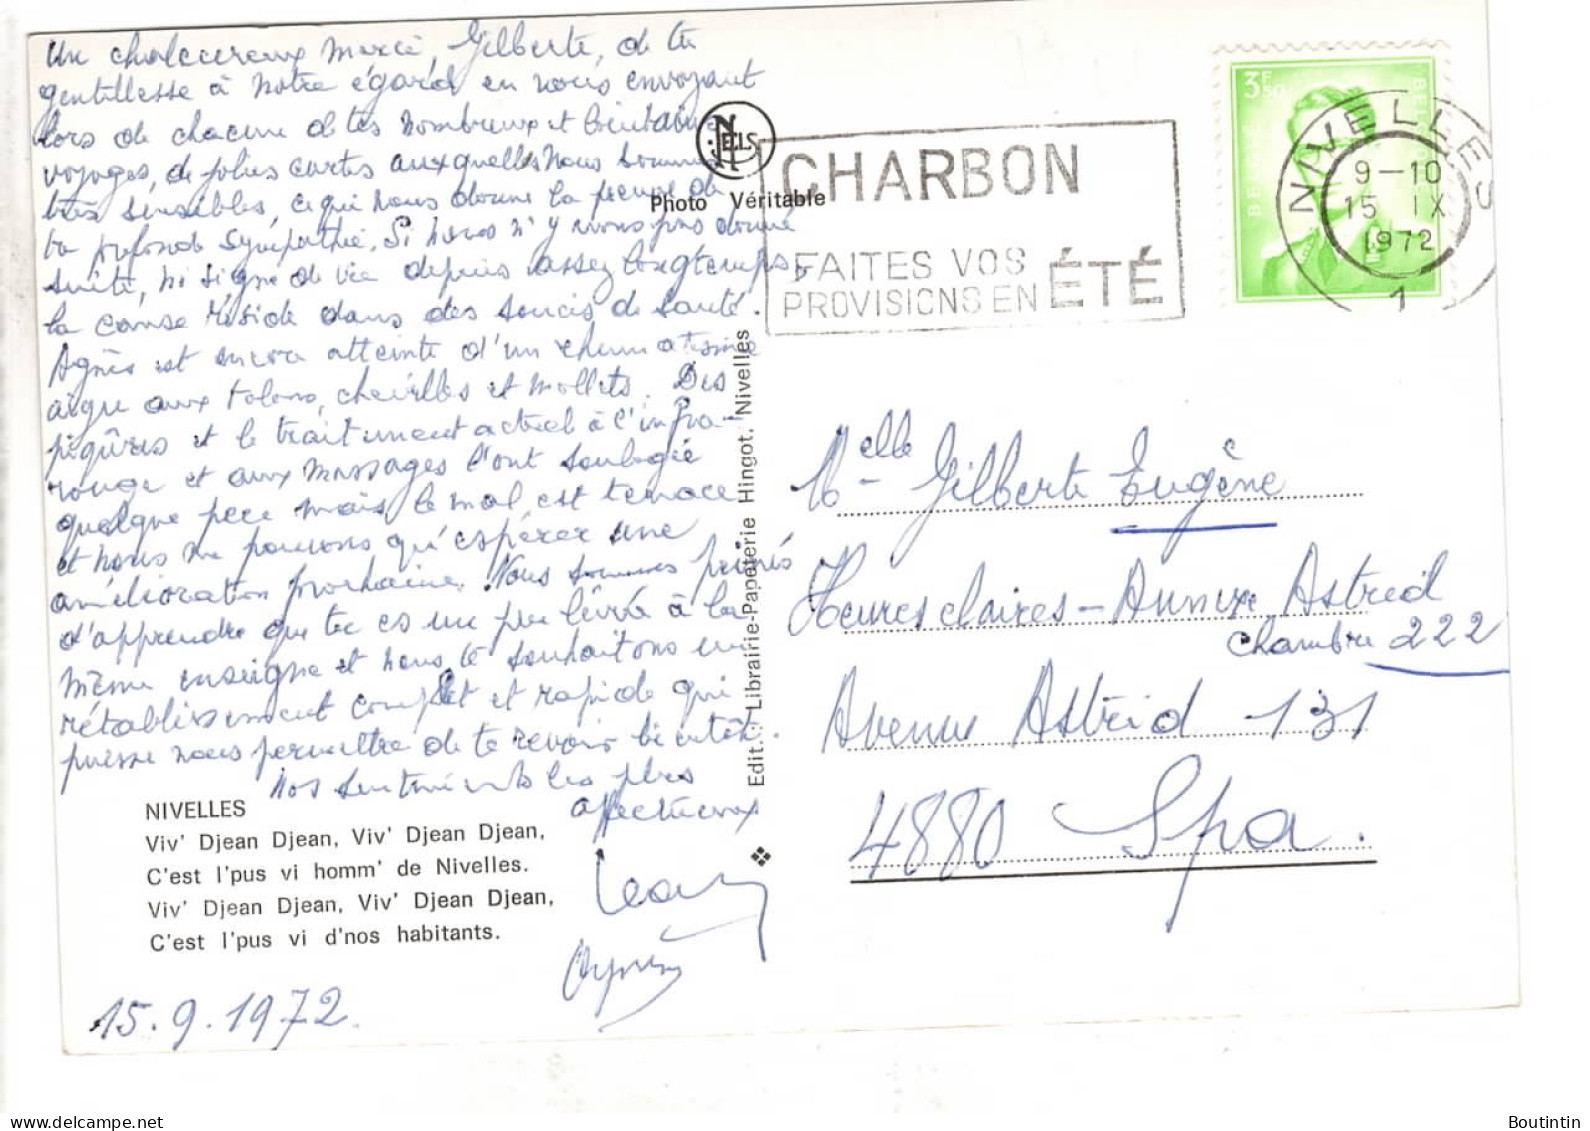 Un chaleureux merci, Gilberte, de ta
gentillesse à notre égard en nous envoyant
lors de chacun de tes nombreux et lointains
voyages, de jolies cartes auxquelles nous sommes
très sensibles, ce qui nous donne la preuve de
ta profonde sympathie. Si nous n'y avons pas donné
suite, ni signe de vie depuis assez longtemps,
la cause réside dans des soucis de santé.
Agnès est encore atteinte d'un rhumatisme
aigu aux talons, chevilles et mollets. Des
piqûres et le traitement actuel à l'infra-
rouge et aux massages l'ont soulagée
quelque peu mais le mal est tenace
et nous ne pouvons qu'espérer une
amélioration prochaine. Nous sommes peinés
d'apprendre que tu es un peu livrée à la
même enseigne et nous te souhaitons un
rétablissement complet et rapide qui
puisse nous permettre de te revoir bientôt.
Nos sentiments les plus
affectueux
Agnès
15.9.1972.
NIVELLES
Viv' Djean Djean, Viv' Djean Djean,
C'est l'pus vi homm' de Nivelles.
Viv' Djean Djean, Viv' Djean Djean,
C'est l'pus vi d'nos habitants.
NELS
Photo Véritable
Edit.: Librairie-Papeterie Hingot. Nivelles
CHARBON
FAITES VOS
PROVISIONS EN ÉTÉ
3F50
NIVELLES
9-10
15 IX
1972
1
Melle Gilberte Eugène
Heures claires - Annexe Astrid
chambre 222
Avenue Astrid 131
4880 Spa.
Boutintin